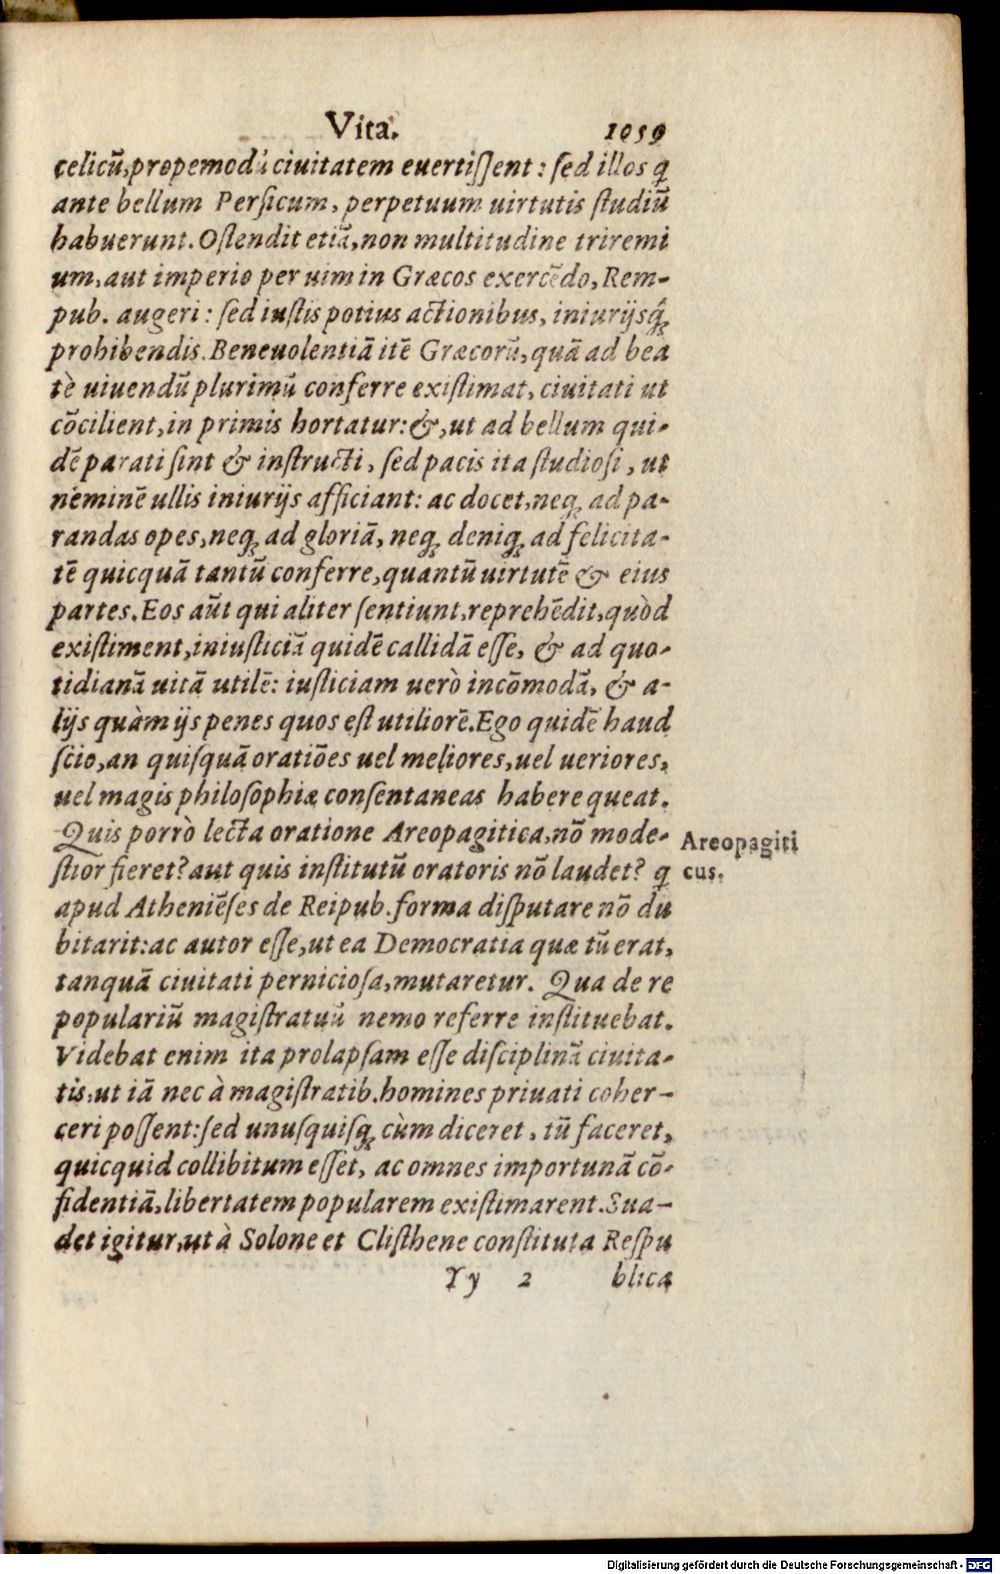 Vita. 1059
celicū, propemodū ciuitatem euertiſſent: ſed illos ꝗ
ante bellum Perſicum, perpetuum uirtutis ſtudiū
habuerunt. Oſtendit etiā, non multitudine triremi
um, aut imperio per uim in Græcos exercēdo, Rem-
pub. augeri: ſed iuſtis potius actionibus, iniurijsq́;
prohibendis. Beneuolentiā itē Græcorū, quā ad bea
tè uiuendū plurimū conferre exiſtimat, ciuitati ut
cōcilient, in primis hortatur: &, ut ad bellum qui-
dē parati ſint & inſtructi, ſed pacis ita ſtudioſi, ut
neminē ullis iniurijs afficiant: ac docet, neq; ad pa-
randas opes, neq; ad gloriā, neq; deniq; ad felicita-
tē quicquā tantū conferre, quantū uirtutē & eius
partes. Eos aūt qui aliter ſentiunt, reprehēdit, quòd
existiment, iniuſticiā quidē callidā eſſe, & ad quo-
tidianā uitā utilē: iuſticiam uerò incōmodā, & a-
lijs quàm ijs penes quos eſt utiliorē. Ego quidē haud
ſcio, an quiſquā oratiōes uel meliores, uel ueriores,
uel magis philoſophiæ conſentaneas habere queat.
Quis porrò lecta oratione Areopagitica, nō mode-
ſtior fieret? aut quis inſtitutū oratoris nō laudet? ꝗ
apud Atheniēſes de Reipub. forma diſputare nō du
bitarit: ac autor eſſe, ut ea Democratia quæ tū erat,
tanquā ciuitati pernicioſa, mutaretur. Qua de re
populariū magiſtratuū nemo referre inſtituebat.
Videbat enim ita prolapſam eſſe diſciplinā ciuita-
tis, ut iā nec à magiſtratib. homines priuati coher-
ceri poſſent: ſed unuſquiſq; cùm diceret, tū faceret,
quicquid collibitum eſſet, ac omnes importunā cō-
fidentiā, libertatem popularem exiſtimarent. Sua-
det igitur, ut à Solone et Cliſthene conſtituta Reſpu
Yy 2 blica
Areopagiti
cus.
Digitalisierung gefördert durch die Deutsche Forschungsgemeinschaft - DFG